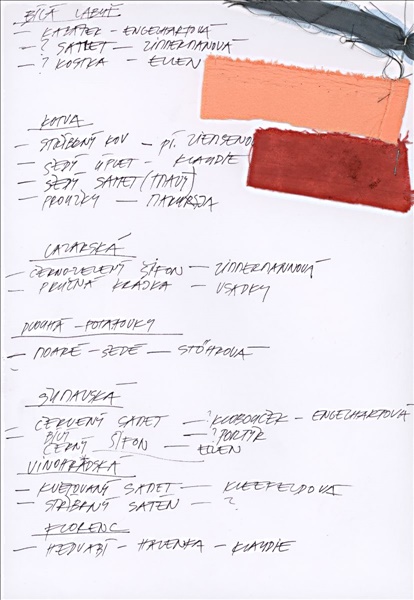 BÍLÁ LABUŤ
— KABÁTEK – ENGELHARTOVÁ
— ? SAMET — ZIMMERMANOVÁ
— ? KOSTKA — ELLEN
KOTVA
— STŘÍBRNÝ KOV — pí.
— ŠEDÝ ÚPLET — KLAUDIE
— ŠEDÝ SAMET (TMAVÝ)
— PROUŽKY —
LAZARSKÁ
— ČERNO-ZELENÝ ŠIFON — ZIMMERMANNOVÁ
— PRUŽNÁ KRAJKA — VSADKY
DLOUHÁ – POTAHOVKY
— MOARÉ – ŠEDÉ — STÖHROVÁ
ŠUMAVSKÁ
— ČERVENÝ SAMET — ? KLOBOUČEK – ENGELHARTOVÁ
— BÍLÝ — ? PORTÝR
ČERNÝ ŠIFON — ELLEN
VINOHRADSKÁ
— KVĚTOVANÝ SAMET — KLEEFELDOVÁ
— STŘÍBRNÝ SATÉN — ?
FLORENC
— HEDVÁBÍ – HALENKA – KLAUDIE